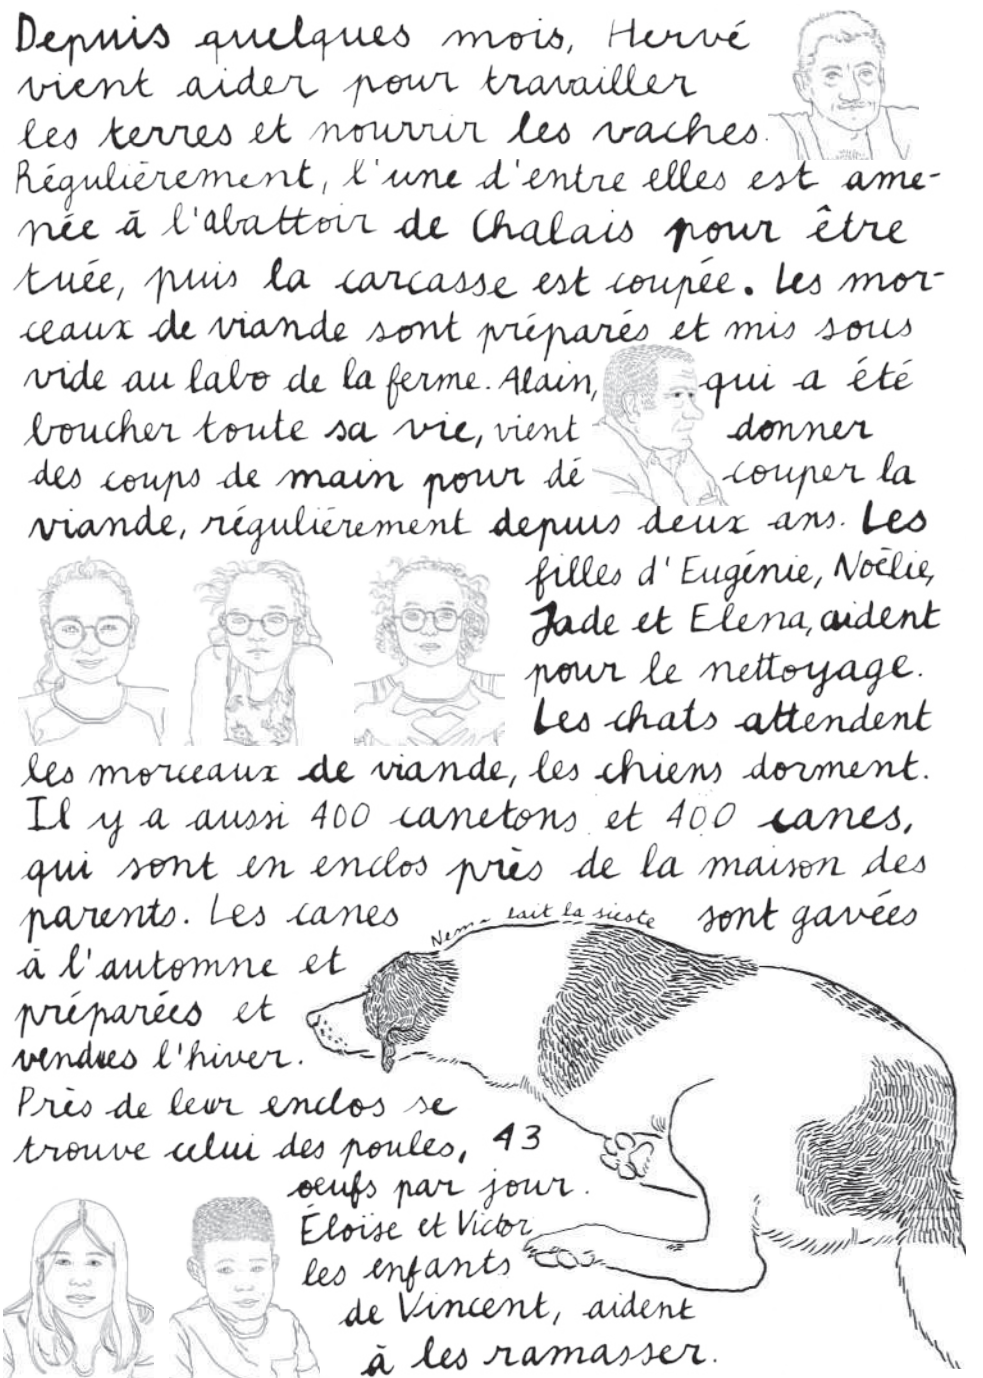 Depuis quelques mois, Hervé
vient aider pour travailler
les terres et nourrir les vaches.
Régulièrement, l'une d'entre elles est ame-
née à l'abattoir de Chalais pour être
tuée, puis la carcasse est coupée. Les mor-
ceaux de viande sont préparés et mis sous
vide au labo de la ferme. Alain, qui a été
boucher toute sa vie, vient donner
des coups de main pour dé couper la
viande, régulièrement depuis deux ans. Les
filles d'Eugénie, Noëlie,
Jade et Elena, aident
pour le nettoyage.
Les chats attendent
les morceaux de viande, les chiens dorment.
Il y a aussi 400 canetons et 400 canes,
qui sont en enclos près de la maison des
parents. Les canes sont gavées
fait la sieste
à l'automne et
préparées et
vendues l'hiver.
Près de leur enclos se
trouve celui des poules, 43
oeufs par jour.
Éloïse et Victor
les enfants
de Vincent, aident
à les ramasser.